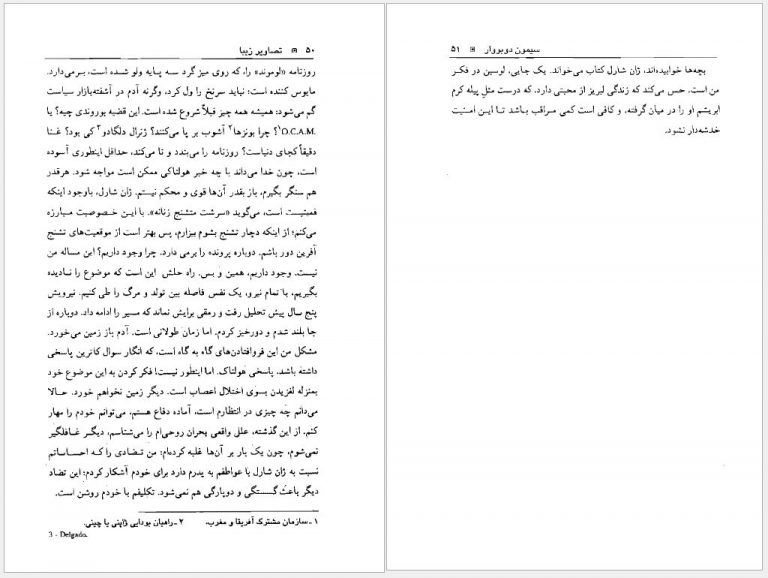 ۵۰ تصاویر زیبا
روزنامه «لوموند» را، که روی میز گرد سه پایه ولو شده است، برمی‌دارد.
مایوس کننده است؛ نباید سرنخ را ول کرد، وگرنه آدم در آشفته‌بازار سیاست
گم می‌شود؛ همیشه همه چیز قبلاً شروع شده است. این قضیه بوروندی چیه؟ یا
O.C.A.M.¹؟ چرا بونزها² آشوب بر پا می‌کنند؟ ژنرال دلگادو³ کی بود؟ غنا
دقیقاً کجای دنیاست؟ روزنامه را می‌بندد و تا می‌کند، حداقل اینطوری آسوده
است، چون خدا می‌داند با چه خبر هولناکی ممکن است مواجه شود. هرقدر
هم سنگر بگیرم، باز بقدر آن‌ها قوی و محکم نیستم. ژان شارل، باوجود اینکه
فمینیست است، می‌گوید «سرشت متشنج زنانه». با این خصوصیت مبارزه
می‌کنم؛ از اینکه دچار تشنج بشوم بیزارم، پس بهتر است از موقعیت‌های تشنج
آفرین دور باشم. دوباره پرونده را برمی دارد. چرا وجود داریم؟ این مساله من
نیست. وجود داریم، همین و بس. راه حلش این است که موضوع را نادیده
بگیریم، با تمام نیرو، یک نفس فاصله بین تولد و مرگ را طی کنیم. نیرویش
پنج سال پیش تحلیل رفت و رمقی برایش نماند که مسیر را ادامه داد. دوباره از
جا بلند شدم و دورخیز کردم. اما زمان طولانی است. آدم باز زمین می‌خورد.
مشکل من این فروافتادن‌های گاه به گاه است، که انگار سوال کاترین پاسخی
داشته باشد، پاسخی هولناک. اما اینطور نیست! فکر کردن به این موضوع خود
بمنزله لغزیدن بسوی اختلال اعصاب است. دیگر زمین نخواهم خورد. حالا
می‌دانم چه چیزی در انتظارم است، آماده دفاع هستم، می‌توانم خودم را مهار
کنم. از این گذشته، علل واقعی بحران روحی‌ام را می‌شناسم، دیگر غافلگیر
نمی‌شوم، چون یک بار بر آن‌ها غلبه کرده‌ام؛ من تضادی را که احساساتم
نسبت به ژان شارل با عواطفم به پدرم دارد برای خودم آشکار کردم؛ این تضاد
دیگر باعث گسستگی و دوپارگی هم نمی‌شود. تکلیفم با خودم روشن است.
۱ـ سازمان مشترک آفریقا و مغرب. ۲ـ راهبان بودایی ژاپنی یا چینی.
3 - Delgado.
سیمون دوبووار ۵۱
بچه‌ها خوابیده‌اند، ژان شارل کتاب می‌خواند. یک جایی، لوسین در فکر
من است. حس می‌کند که زندگی لبریز از محبتی دارد، که درست مثل پیله کرم
ابریشم او را در میان گرفته، و کافی است کمی مراقب باشد تا این امنیت
خدشه‌دار نشود.